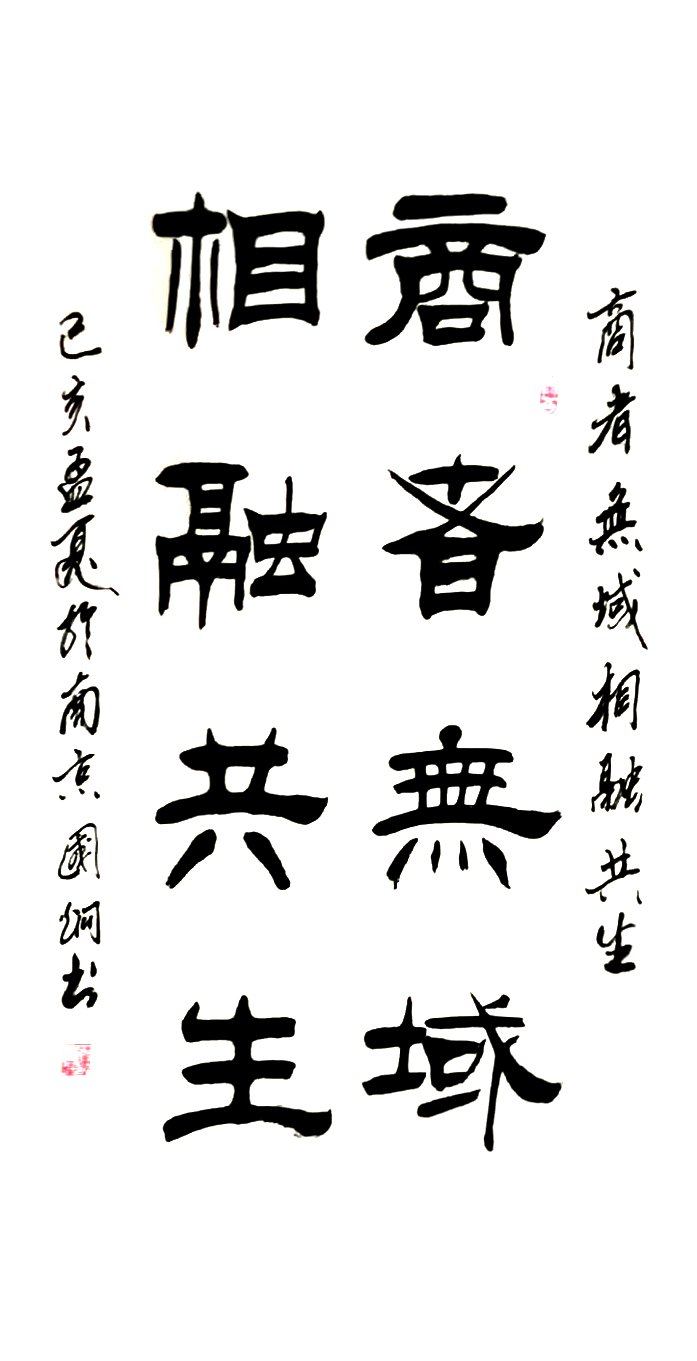 商者無域相融共生
商者無域
相融共生
己亥孟夏於南京國炯书